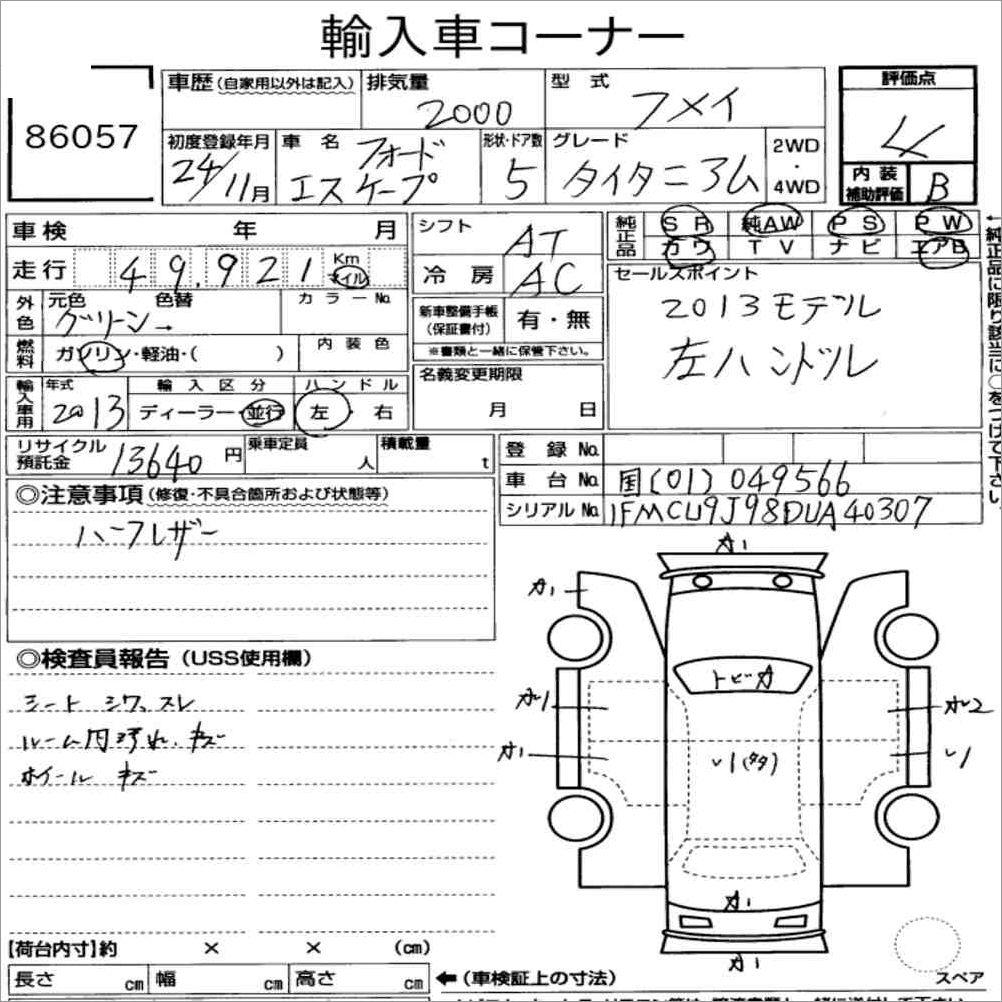 輸入車コーナー
86057
車歴(自家用以外は記入) 排気量 2000 型式 フメイ 評価点 4
初度登録年月 24/11月 車名 フォード エスケープ 形状・ドア数 5 グレード タイタニアム 2WD・4WD 内装補助評価 B
車検 年 月 シフト AT 純正品 SR 純AW PS PW
カワ TV ナビ エアB
走行 49,921 Km マイル 冷房 AC
セールスポイント
2013モデル
左ハンドル
外色 元色 色替 カラーNo.
グリーン→
新車整備手帳(保証書付) 有・無
※書類と一緒に保管下さい。
燃料 ガソリン・軽油・( ) 内装色
名義変更期限
月 日
輸入車用 年式 2013 輸入区分 ディーラー・並行 ハンドル 左・右
←純正品に限り該当に○をつけて下さい。
リサイクル預託金 13640円 乗車定員 人 積載量 t
登録No.
車台No. 国(01)049566
シリアルNo. 1FMCU9J98DUA40307
◎注意事項(修復・不具合箇所および状態等)
ハーフレザー
◎検査員報告(USS使用欄)
シート シワ、スレ
ルーム内汚れ、キズ
ホイール キズ
A1
A1
トビA
A1
A2
A1
U1(タタ)
U1
A1
A1
スペア
【荷台内寸】約 × × (cm)
長さ cm 幅 cm 高さ cm ←(車検証上の寸法)